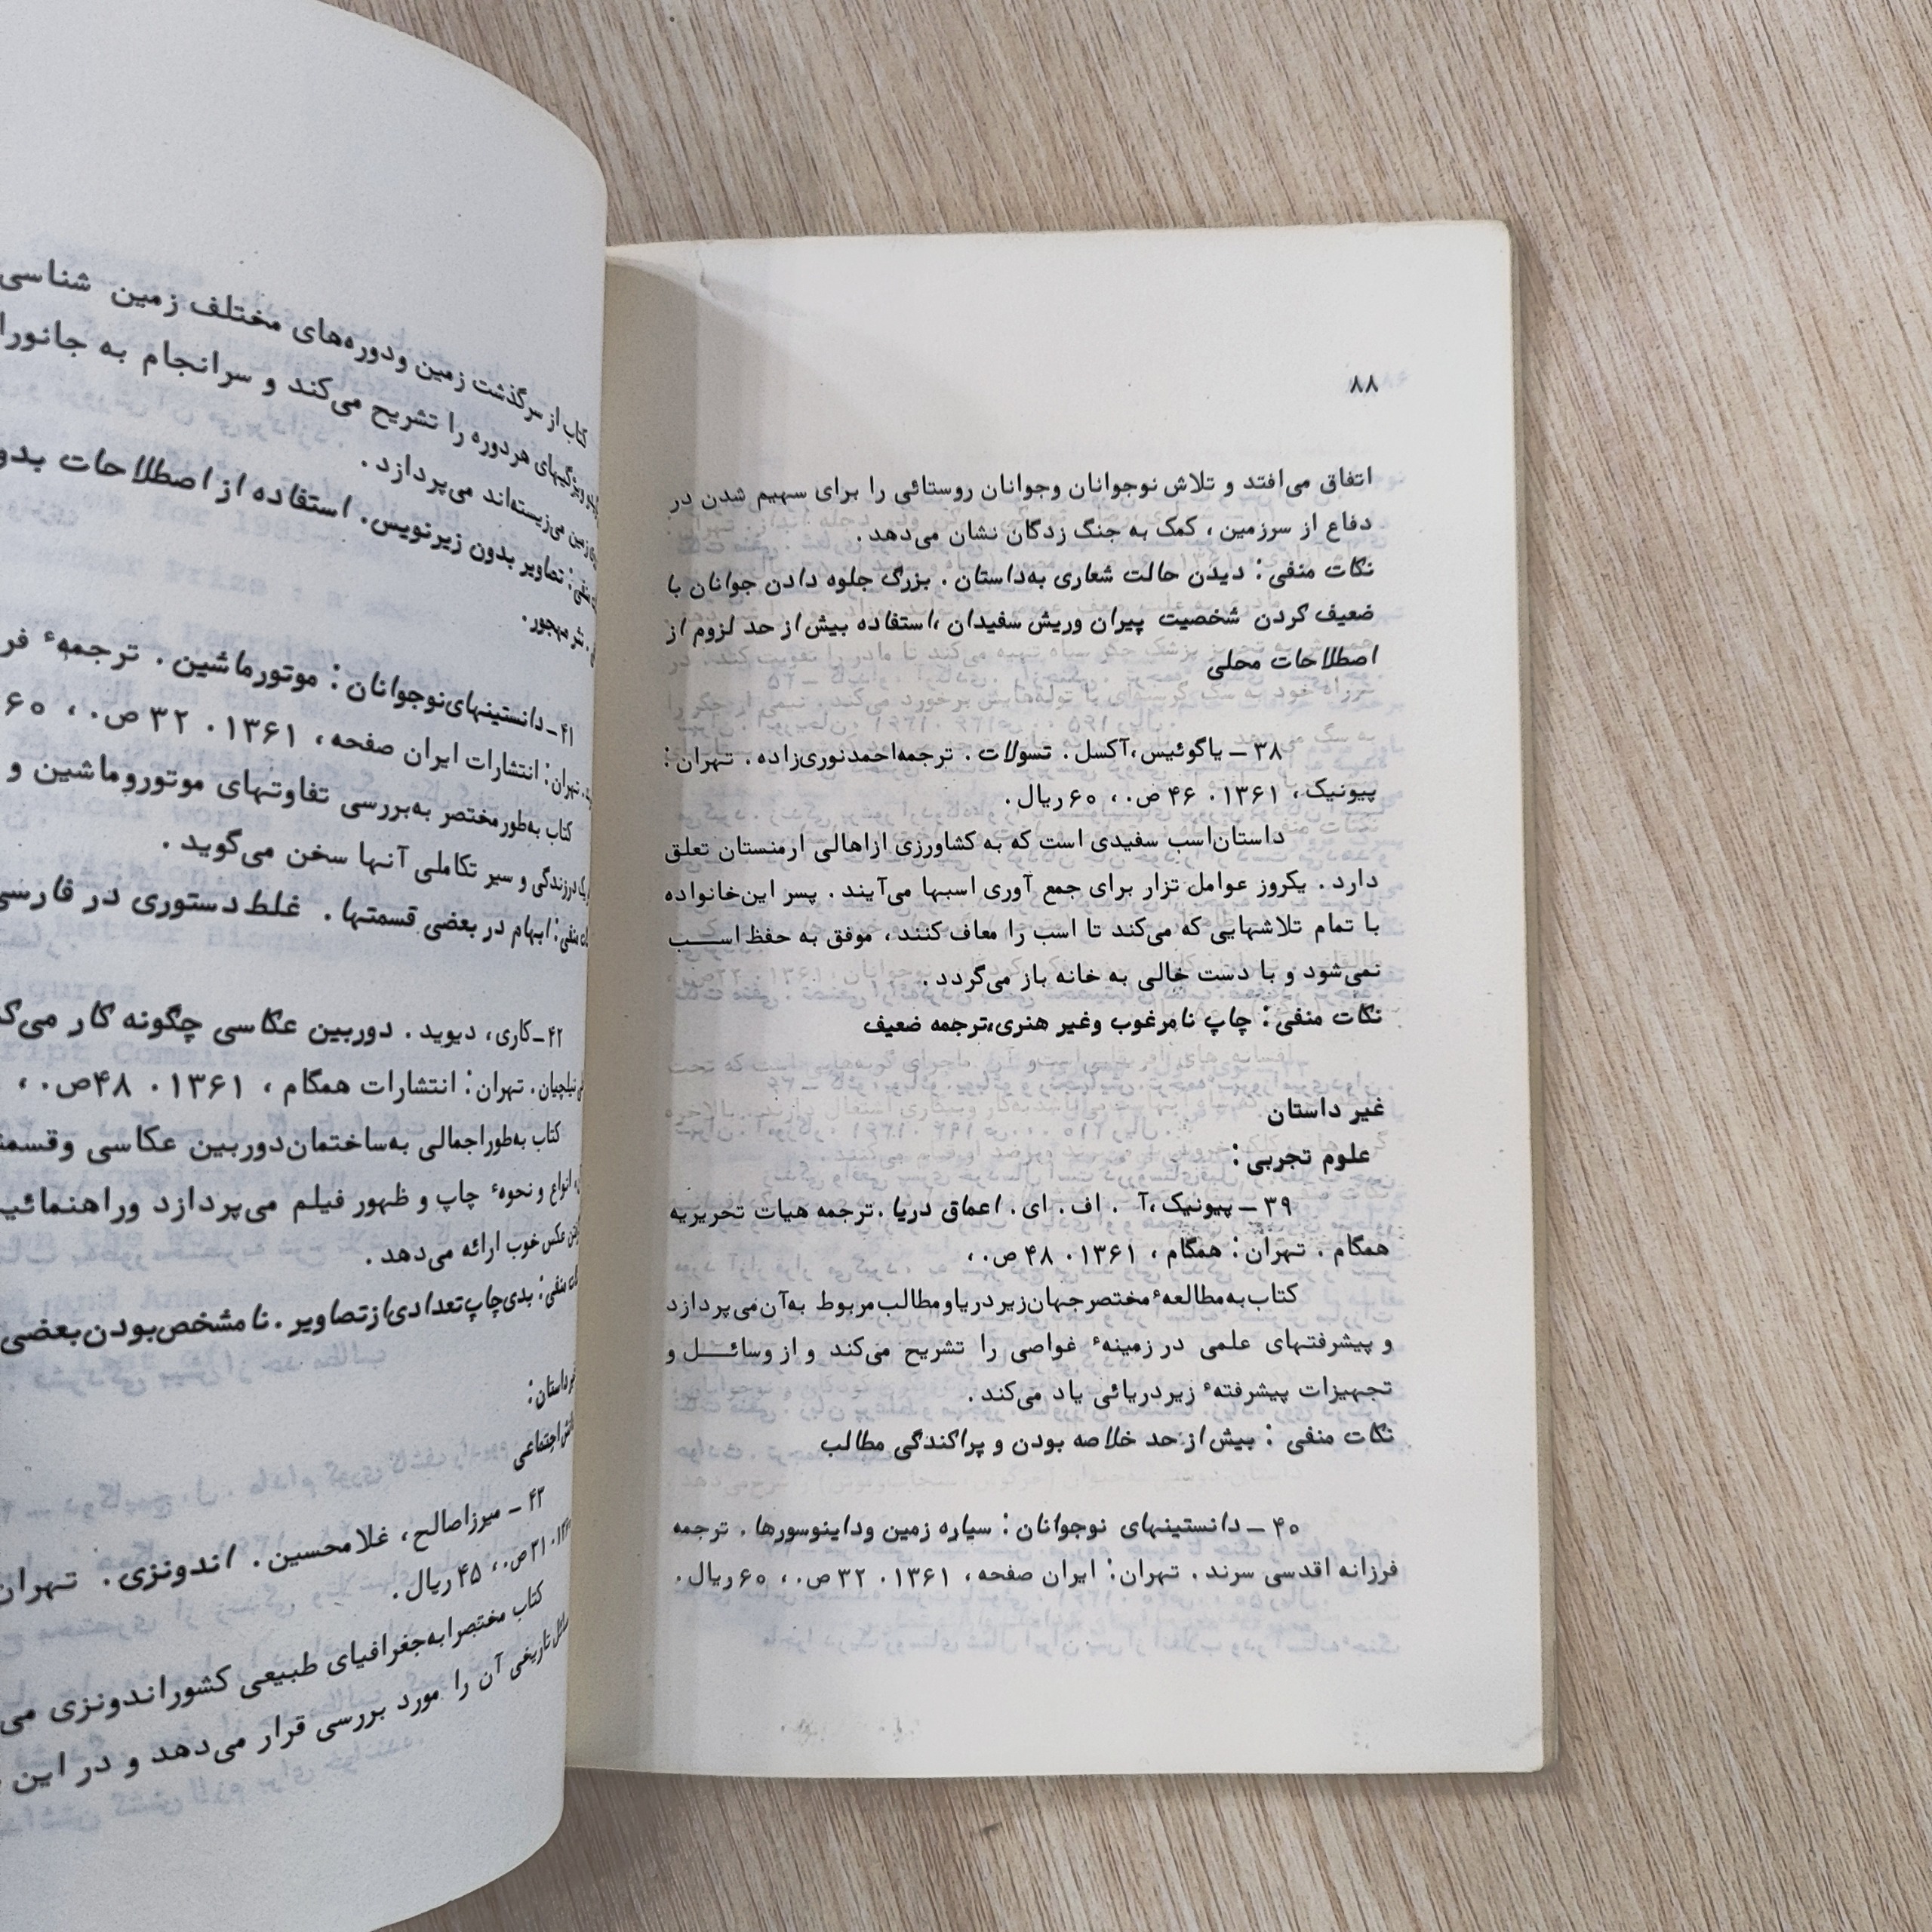 ۸۸
اتفاق می‌افتد و تلاش نوجوانان وجوانان روستائی را برای سهیم شدن در
دفاع از سرزمین ، کمک به جنگ زدگان نشان می‌دهد .
نکات منفی : دیدن حالت شعاری به‌داستان . بزرگ جلوه دادن جوانان با
ضعیف کردن شخصیت پیران وریش سفیدان ،استفاده بیش از حد لزوم از
اصطلاحات محلی
۳۸ – یاگوئیس،آکسل . تسولات . ترجمه‌احمدنوری‌زاده . تهران :
پیونیک، ۱۳۶۱ . ۴۶ ص. ، ۶۰ ریال .
داستان‌اسب سفیدی است که به کشاورزی ازاهالی ارمنستان تعلق
دارد . یکروز عوامل تزار برای جمع آوری اسبها می‌آیند . پسر این‌خانواده
با تمام تلاشهایی که می‌کند تا اسب را معاف کنند ، موفق به حفظ اســـب
نمی‌شود و با دست خالی به خانه باز می‌گردد .
نکات منفی : چاپ نامرغوب وغیر هنری،ترجمه ضعیف
غیر داستان
علوم تجربی :
۳۹ – پیونیک،آ . اف . ای . اعماق دریا .ترجمه هیات تحریریه
همگام . تهران : همگام ، ۱۳۶۱ . ۴۸ ص. ،
کتاب‌به‌مطالعهٔ مختصرجهان‌زیردریاومطالب‌مربوط به‌آن‌می‌پردازد
و پیشرفتهای علمی در زمینهٔ غواصی را تشریح می‌کند و از وسائــل و
تجهیزات پیشرفتهٔ زیردریائی یاد می‌کند .
نکات منفی : بیش‌از حد خلاصه بودن و پراکندگی مطالب
۴۰ – دانستینهای نوجوانان : سیاره زمین وداینوسورها . ترجمه
فرزانه اقدسی سرند . تهران : ایران صفحه، ۱۳۶۱ . ۳۲ ص. ، ۶۰ ریال .
کتاب از سرگذشت زمین ودوره‌های مختلف زمین شناسی
ویژگیهای هردوره را تشریح می‌کند و سرانجام به
زمین می‌زیسته‌اند می‌پردازد .
منفی : تصاویر بدون زیرنویس . استفاده از اصطلاحات
. نثر مهجور .
۴۱ – دانستینهای‌نوجوانان : موتورماشین . ترجمهٔ
تهران : انتشارات ایران صفحه، ۱۳۶۱ . ۳۲ ص. ، ۶۰
کتاب به‌طورمختصر به‌بررسی تفاوتهای موتوروماشین و
درزندگی و سیر تکاملی آنها سخن می‌گوید .
منفی : ابهام در بعضی قسمتها . غلط دستوری در فارسی
۴۲–کاری، دیوید . دوربین عکاسی چگونه کار
تهران : انتشارات همگام ، ۱۳۶۱ . ۴۸ص. ،
کتاب به‌طوراجمالی به‌ساختمان‌دوربین عکاسی
انواع و نحوهٔ چاپ و ظهور فیلم می‌پردازد
عکس خوب ارائه می‌دهد .
منفی : بدی‌چاپ‌تعدادی‌ازتصاویر . نامشخص‌بودن‌بعضی
داستان :
اجتماعی
۴۳ – میرزاصالح ، غلامحسین . اندونزی . تهران
۲۱ ص. ، ۴۵ ریال .
کتاب مختصرابه‌جغرافیای طبیعی کشوراندونزی
تاریخی آن را مورد بررسی قرار می‌دهد و در این